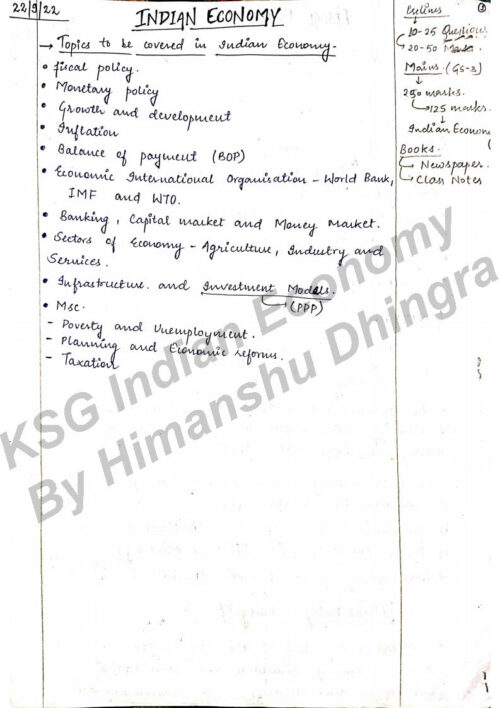 22/9/22
INDIAN ECONOMY
→ Topics to be covered in Indian Economy-
• fiscal policy.
• Monetary policy
• Growth and development
• Inflation
• Balance of payment (BOP)
• Economic International Organisation - World Bank,
IMF and WTO.
• Banking, Capital market and Money Market.
• Sectors of Economy - Agriculture, Industry and
Services.
• Infrastructure and Investment Models.
(PPP)
• Msc.
- Poverty and Unemployment.
- Planning and Economic reforms.
- Taxation
10-25 Questions
20-50 Marks
Mains. (GS-3)
250 marks.
125 marks.
Indian Econom
Books.
Newspaper.
Class Notes
KSG Indian Economy
By Himanshu Dhingra